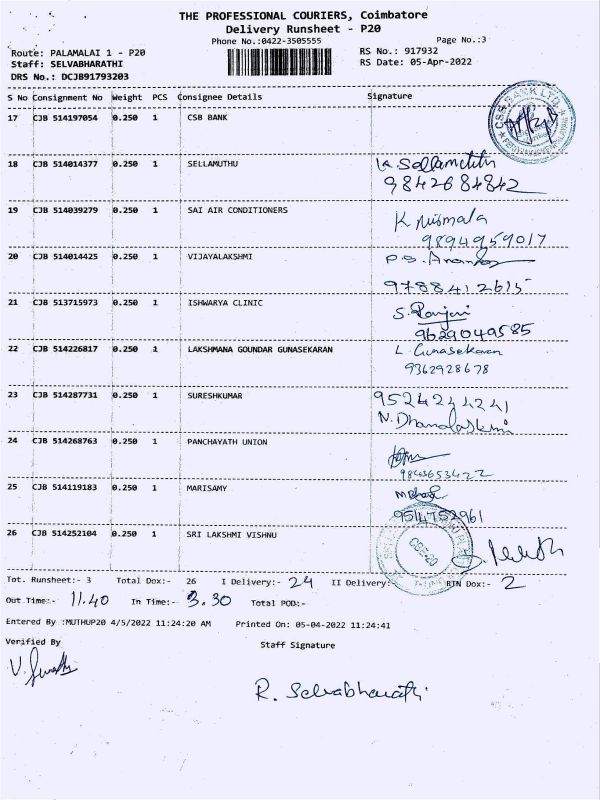 THE PROFESSIONAL COURIERS, Coimbatore
Delivery Runsheet - P20
Phone No.:0422-3505555
Page No.:3
Route: PALAMALAI 1 - P20
RS No.: 917932
Staff: SELVABHARATHI
RS Date: 05-Apr-2022
DRS No.: DCJB91793203
S No Consignment No Weight PCS Consignee Details Signature
17 CJB 514197054 0.250 1 CSB BANK
CSB BANK LTD.
18 CJB 514014377 0.250 1 SELLAMUTHU
9842684842
19 CJB 514039279 0.250 1 SAI AIR CONDITIONERS K Nirmala
9894959017
20 CJB 514014425 0.250 1 VIJAYALAKSHMI
9788412615
21 CJB 513715973 0.250 1 ISHWARYA CLINIC S. Ranjani
9629049585
22 CJB 514226817 0.250 1 LAKSHMANA GOUNDAR GUNASEKARAN L. Gunasekaran
9362928678
23 CJB 514287731 0.250 1 SURESHKUMAR 9524244241
N. Dhanalakshmi
24 CJB 514268763 0.250 1 PANCHAYATH UNION
9843653422
25 CJB 514119183 0.250 1 MARISAMY
9514752961
26 CJB 514252104 0.250 1 SRI LAKSHMI VISHNU
Tot. Runsheet:- 3 Total Dox:- 26 I Delivery:- 24 II Delivery:- RTN Dox:- 2
Out Time:- 11.40 In Time:- 3.30 Total POD:-
Entered By :MUTHUP20 4/5/2022 11:24:20 AM Printed On: 05-04-2022 11:24:41
Verified By
Staff Signature
R. Selvabharathi